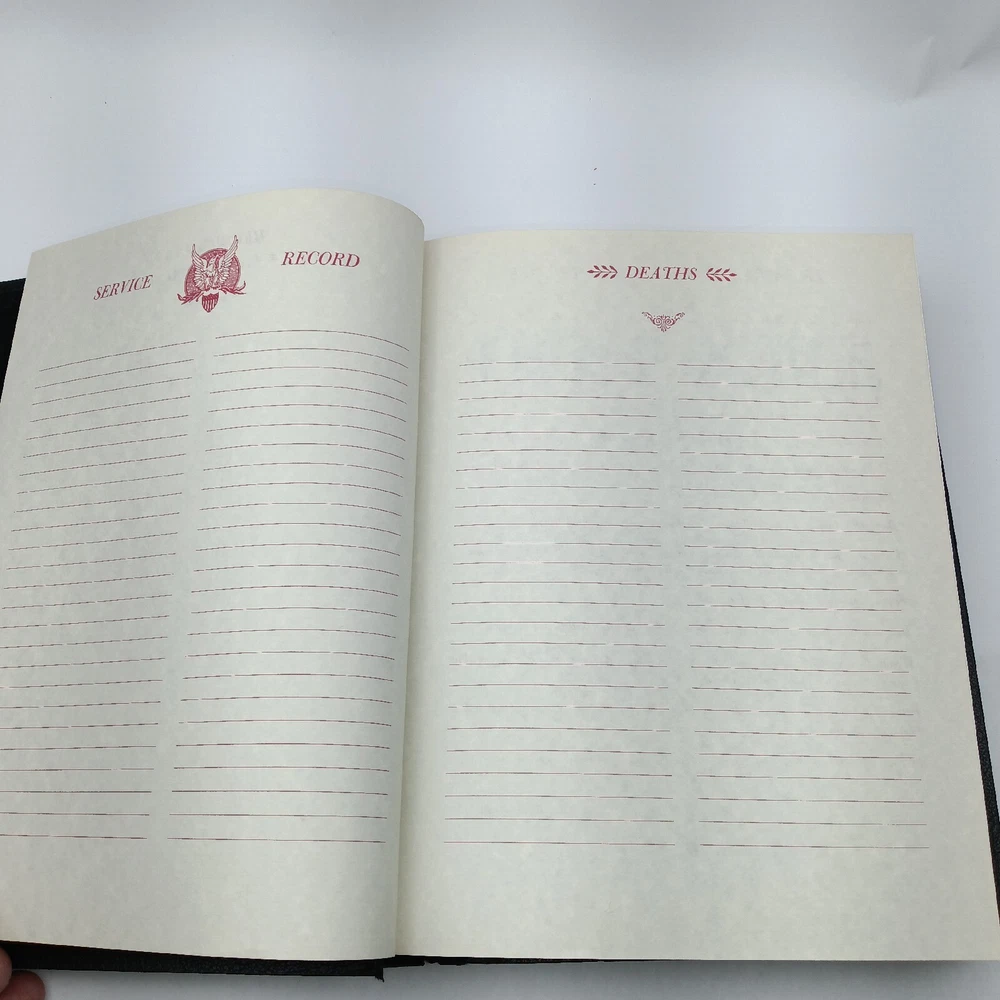 SERVICE RECORD
DEATHS